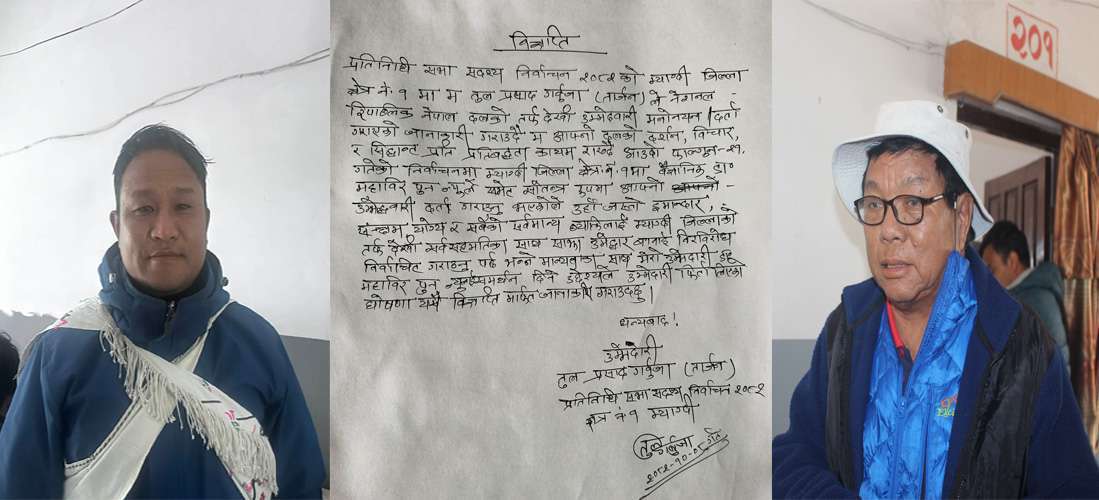 विज्ञप्ति
प्रतिनिधि सभा सदस्य निर्वाचन २०८२ को म्याग्दी जिल्ला
क्षेत्र नं. १ मा म तुल प्रसाद गर्बुजा (तार्जन) ले नेशनल -
रिपब्लिक नेपाल दलको तर्फ देखी उम्मेदवारी मनोनयन दर्ता
गराएको जानाकारी गराउदै म आफ्नो दलको दर्शन, विचार,
र सिद्धान्त प्रति प्रतिबद्धता कायम राख्दै आउदो फाल्गुन-२१
गतेको निर्वाचनमा म्याग्दी जिल्ला क्षेत्र नं १ मा वैज्ञानिक डा०
महाविर पुन ज्यूले समेत स्वतन्त्र रुपमा आफ्नो
उम्मेदवारी दर्ता गराउनु भएकोले उहाँ जस्तो इमान्दार,
योग्य र सबैको सर्वमान्य व्यक्तिलाई म्याग्दी जिल्लाको
तर्फ देखी सर्वसहमतिका साथ साझा उमेद्वार बनाई निरविरोध
निर्वाचित गराउनु पर्छ भन्ने मान्यताका साथ मेरो उमेदवारी डा०
महाविर पुन समर्थन दिने उद्देश्यले उम्मेदवारी फिर्ता लिएको
घोषणा यसै विज्ञप्ति मार्फत जानाकारी गराउदछु।
धन्यवाद!
उम्मेदवारी
तुल प्रसाद गर्बुजा (तार्जन)
प्रतिनिधी सभा सदस्य निर्वाचन २०८२
क्षेत्र नं १ म्याग्दी
तुल गर्बुजा
२०८२-१०-०९ गते
२०१